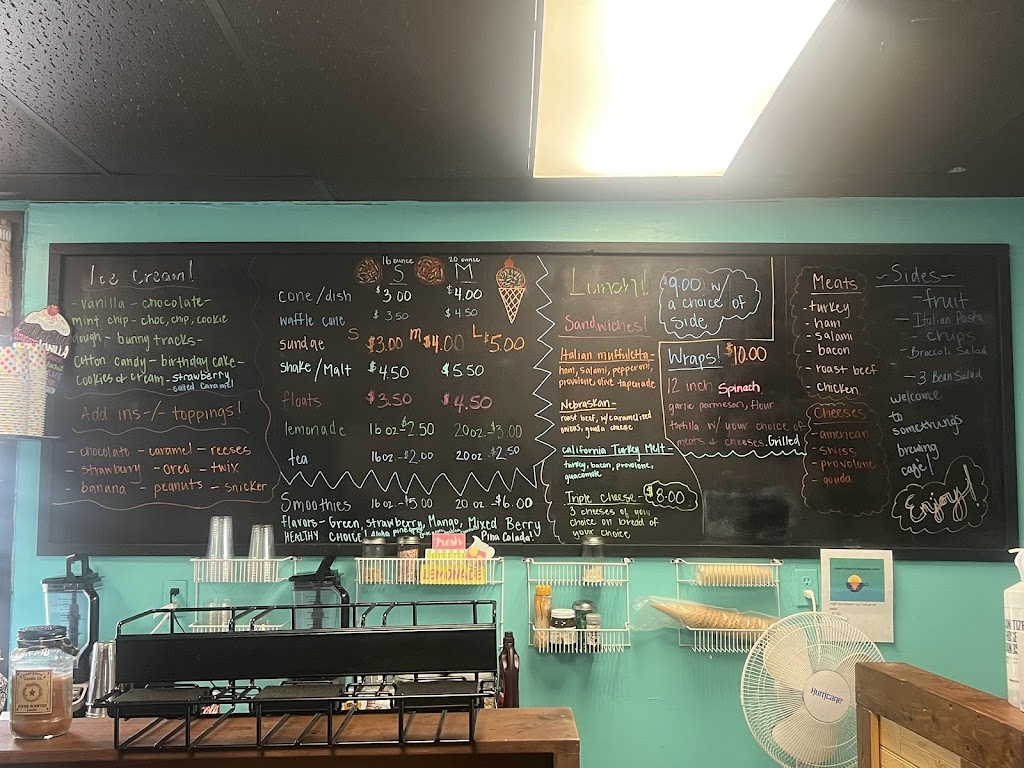 Ice Cream!
- vanilla - chocolate -
mint chip - choc, chip, cookie
dough - bunny tracks -
cotton candy - birthday cake -
cookies & cream - strawberry
- salted caramel
Add ins -/- toppings!
- chocolate - caramel - reeses
- strawberry - oreo - twix
- banana - peanuts - snicker
16 ounce 20 ounce
S M
cone/dish $3.00 $4.00
waffle cone $3.50 $4.50
sundae S $3.00 m $4.00 L $5.00
shake/Malt $4.50 $5.50
floats $3.50 $4.50
lemonade 16oz - $2.50 20oz - $3.00
tea 16oz - $2.00 20oz - $2.50
Smoothies 16oz - $5.00 20 oz - $6.00
flavors - Green, strawberry, Mango, Mixed Berry
HEALTHY CHOICE! Aloha pineapple Pina Colada!
Lunch!
$9.00 w/
a choice of
side
Sandwiches!
Italian muffuletta -
ham, salami, pepperoni,
provolone, olive tapenade
Nebraskan -
roast beef, w/ caramelized
onions, gouda cheese
california Turkey Melt -
turkey, bacon, provolone,
guacamole
Triple Cheese - $8.00
3 cheeses of your
choice on bread of
your choice
Wraps! $10.00
12 inch Spinach,
garlic parmesan, flour
tortilla w/ your choice of
meats & cheeses. Grilled
Meats
- turkey
- ham
- salami
- bacon
- roast beef
- chicken
Cheeses
- american
- swiss
- provolone
- gouda
- Sides -
- fruit
- Italian Pasta
- chips
- Broccoli Salad
- 3 Bean Salad
welcome
to
something's
brewing
cafe!
Enjoy!
VANILLA
Fresh
LEMONADE
Hurricane